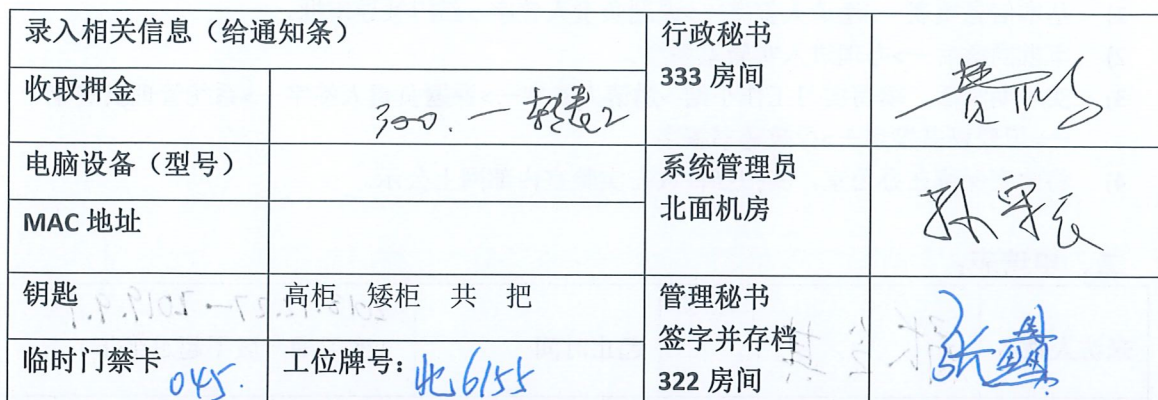 录入相关信息（给通知条）
行政秘书
333 房间
收取押金
300.
电脑设备（型号）
系统管理员
北面机房
MAC 地址
孙
钥匙
高柜 矮柜 共 把
管理秘书
签字并存档
322 房间
张
临时门禁卡 045.
工位牌号：北6155